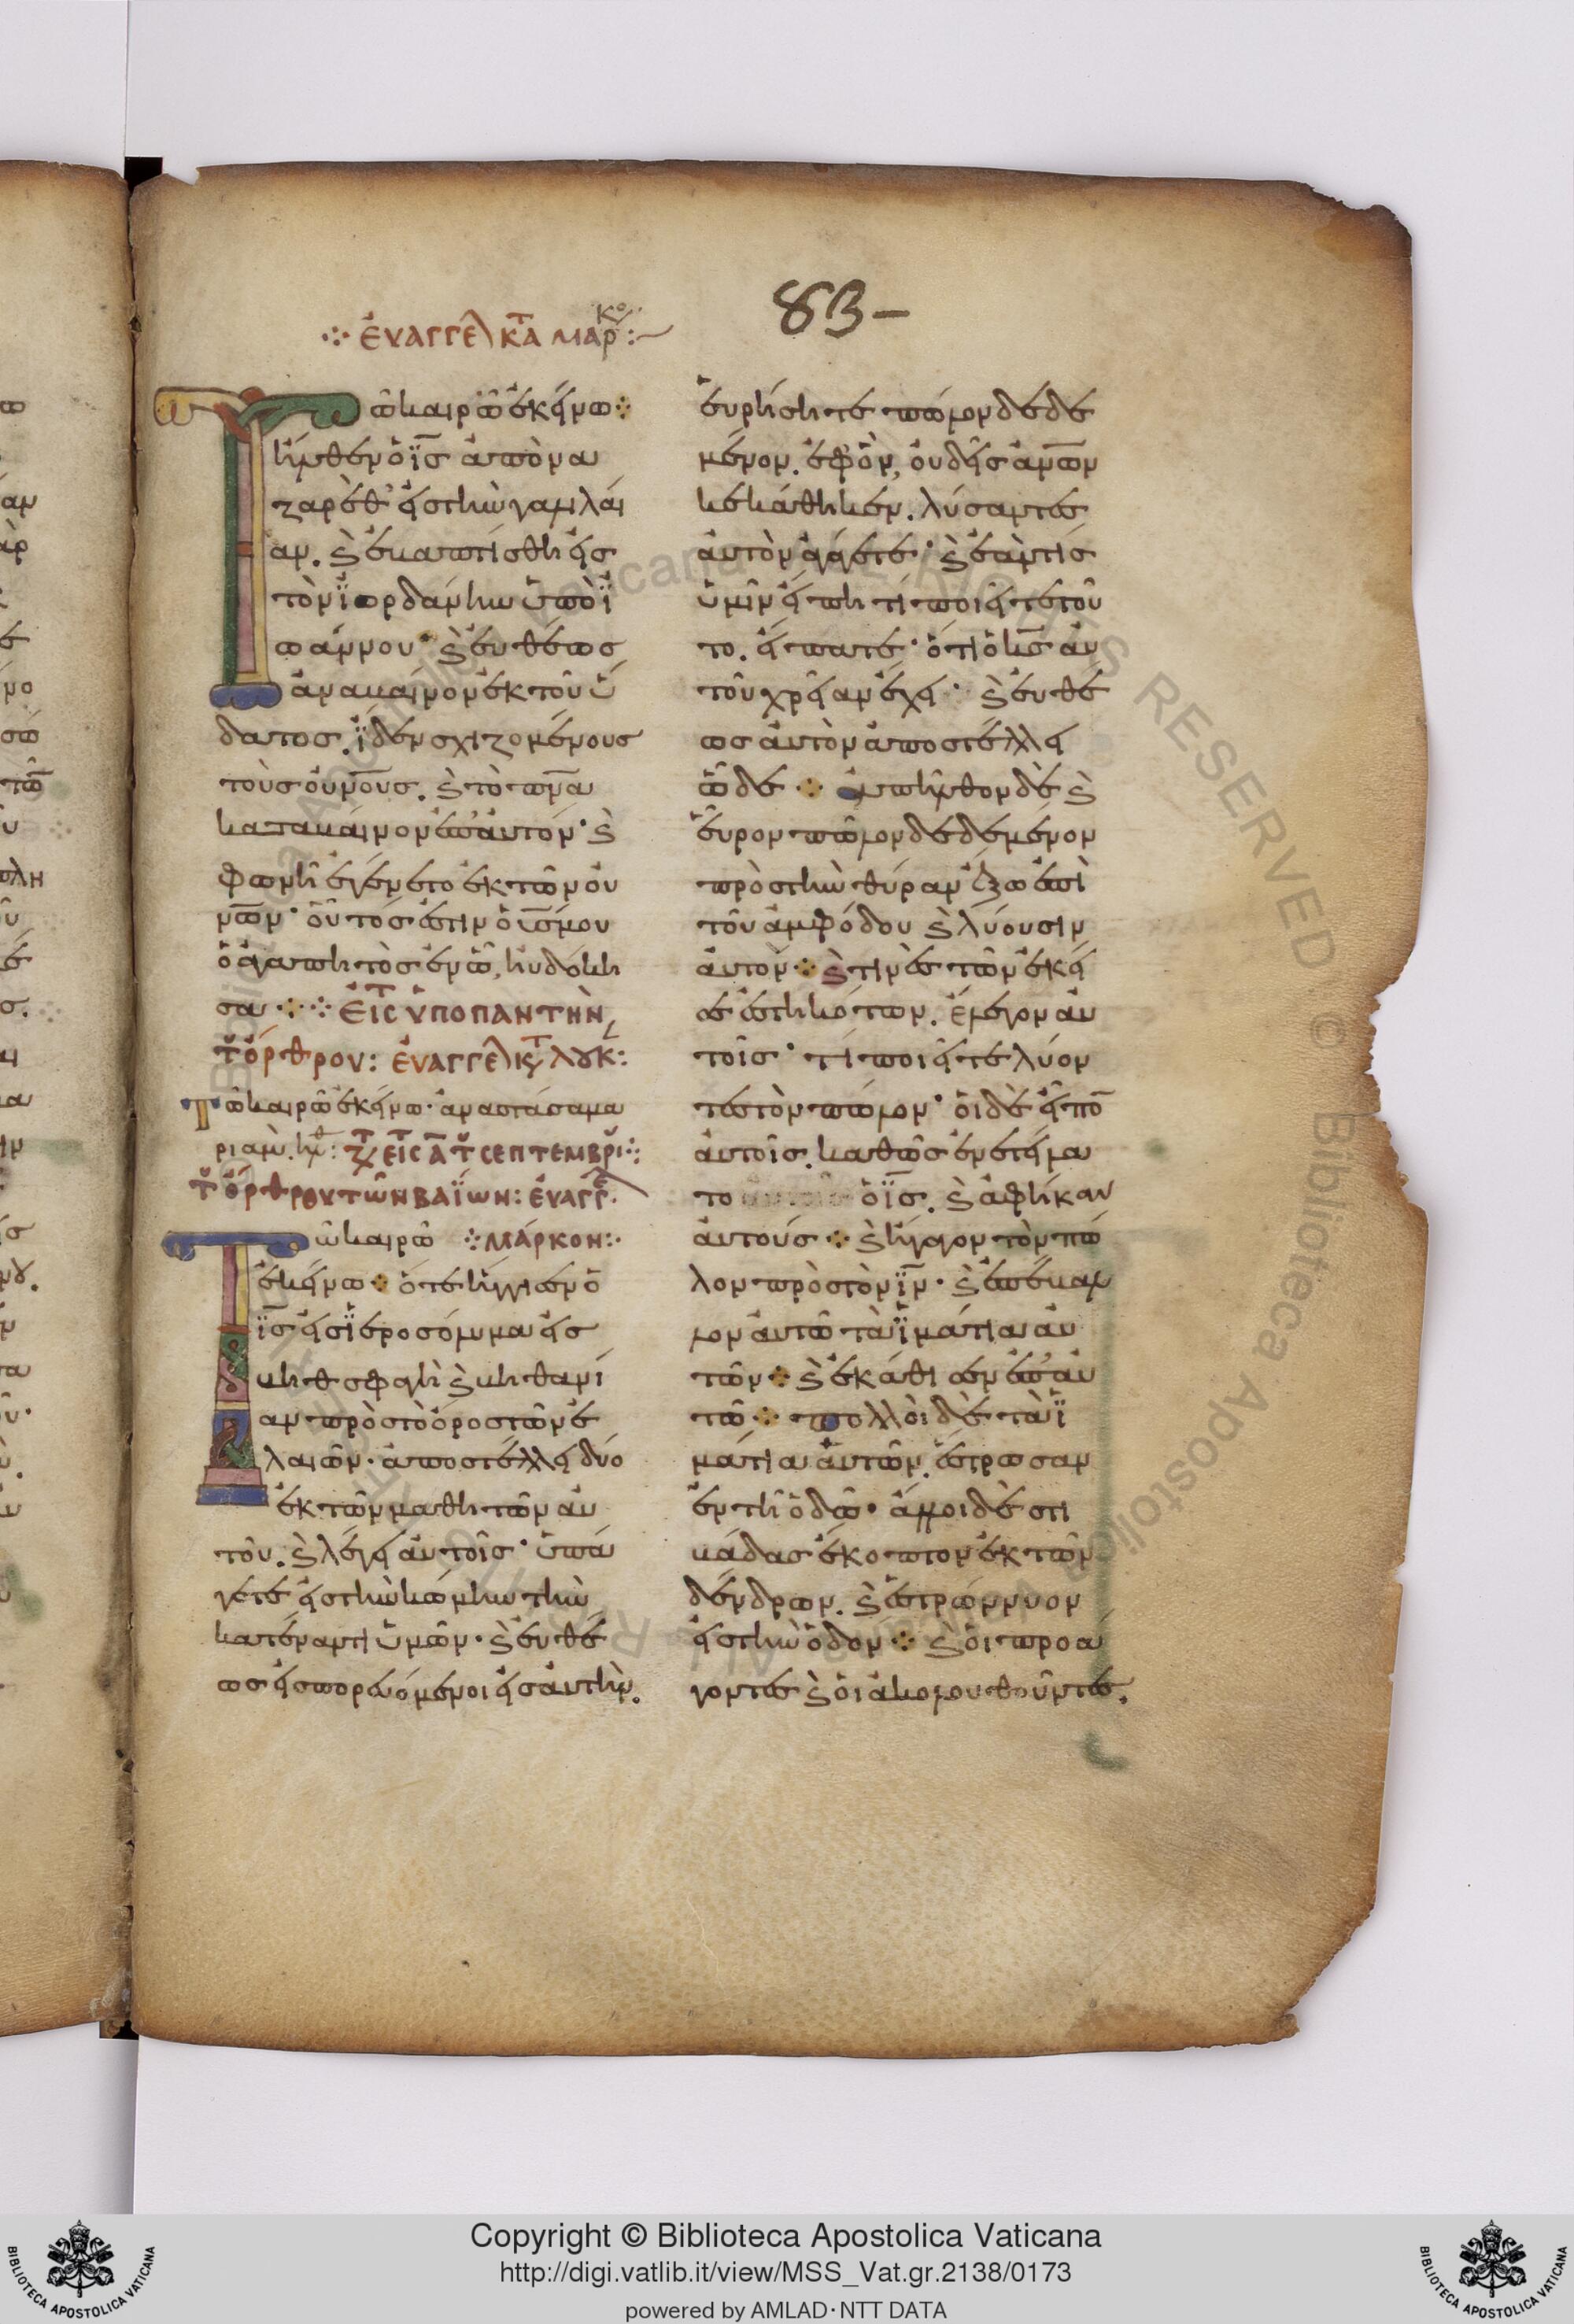 83-
⁘ ἐυαγγε̂λ κτα μαρκο:
Τῶ καιρῶ ἐκείνω⁘
ἦλθεν ὁ ϊς ἀπὸ να
ζαρὲθ εἰς τὴν γαλιλαί
αν. ϗ ἐβαπτίσθη εἰς
τὸν ϊορδάνην ὑπὸ ϊ
ωάννου· ϗ ἐυθέως
ἀναβαίνον ἐκ τοῦ ὕ
δατος. ϊδεν σχιζομένους
τοὺς ουνους. ϗ τὸ πνα
καταβαίνον ἐπ' ἀυτόν· ϗ
φωνὴ ἐγένετο ἐκ τῶν ου
νων· οὗτός ἐστιν ὁ υς μου
ὁ ἀγαπητὸς ἐν ῶ, ἠυδόκη
σα ⁘ ⁘ Εἰς ὑποπαντὴν
τ ὄρθρου: ἐυαγγελ κτ λουκ:
Τῶ καιρῶ ἐκείνω· ἀναστάσα μα
ριὰμ. εἰς α τ σεπτεμβρι:
τ ὄρθρου τῶν βαΐων: ἐυαγγε.
Τῶ καιρῶ ⁘ μάρκον:·
ἐκείνω⁘ ὅτε ἤγγισεν ὁ
ϊς εἰς ϊεροσόλυμα εἰς
βηθσφαγὴ ϗ βηθανί
αν πρὸς τὸ ὄρος τῶν ἐ
λαιῶν· ἀποστέλλει δύο
ἐκ τῶν μαθητῶν ἀυ
τοῦ. ϗ λέγει ἀυτοῖς· ὑπά
γετε εἰς τὴν κώμην τὴν
κατέναντι ὑμῶν· ϗ ἐυθέ
ως εἰσπορευόμενοι εἰς ἀυτὴν.
ἑυρήσητε πῶλον δεδε
μένον. ἐφ' ὃν, ὀυδεὶς ανων
κεκάθηκεν. λύσαντες
ἀυτὸν ἀγάγετε· ϗ ἐάν τις
ὑμῖν εἴπη τί ποιεῖτε τοῦ
το. εἴπατε· ὅτι ὁ κς ἀυ
τοῦ χρείαν ἔχει· ϗ ἐυθέ
ως ἀυτὸν ἀποστέλλει
ὧδε ⁘ ἀπῆλθον δὲ ϗ
ἕυρον πῶλον δεδεμένον
πρὸς τὴν θύραν ἔξω ἐπὶ
τοῦ ἀμφόδου ϗ λύουσιν
ἀυτόν⁘ ϗ τινὲς τῶν ἐκεῖ
σε ἑστηκότων. ἔλεγον ἀυ
τοῖς· τί ποιεῖτε λύον
τες τὸν πῶλον· ὁι δὲ εἶπο
ἀυτοῖς. καθὼς ἐνετείλα
το ὁ ϊς. ϗ ἀφῆκαν
ἀυτούς⁘ ϗ ἤγαγον τὸν πῶ
λον πρὸς τὸν ϊν· ϗ ἐπέβαλ
λον ἀυτῶ τὰ ϊμάτια ἀυ
τῶν⁘ ϗ ἐκάθισεν ἐπ' ἀυ
τῶ⁘ πολλοὶ δὲ τὰ ϊ
μάτια ἀυτῶν. ἔστρωσαν
ἐν τῆ ὁδῶ· ἄλλοι δὲ στι
βάδας ἔκοπτον ἐκ τῶν
δένδρων. ϗ ἐστρώννυον
εἰς τὴν ὁδόν⁘ ϗ ὁι προα
γοντες ϗ ὁι ἀκολουθοῦντες.
Copyright © Biblioteca Apostolica Vaticana
http://digi.vatlib.it/view/MSS_Vat.gr.2138/0173
powered by AMLAD·NTT DATA
BIBLIOTECA APOSTOLICA VATICANA
BIBLIOTECA APOSTOLICA VATICANA